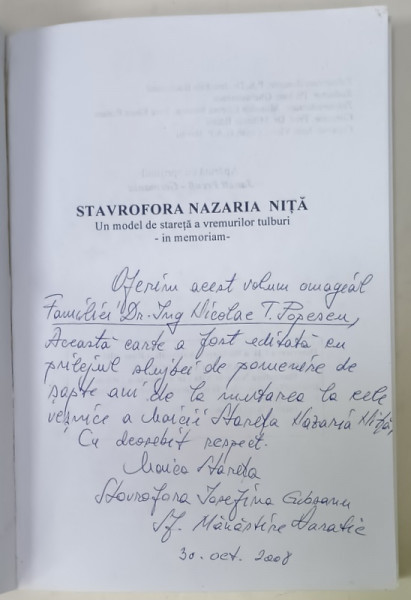 STAVROFORA NAZARIA NIȚĂ
Un model de stareță a vremurilor tulburi
- in memoriam-
Oferim acest volum omagial
Familiei Dr. Ing Nicolae T. Popescu,
Această carte a fost editată cu
prilejul slujbei de pomenire de
șapte ani de la mutarea la cele
veșnice a Maicii Starețe Nazaria Niță,
Cu deosebit respect.
Maica Stareța
Stavrofora Iosefina
Sf. Mănăstire Varatic
30. oct. 2008